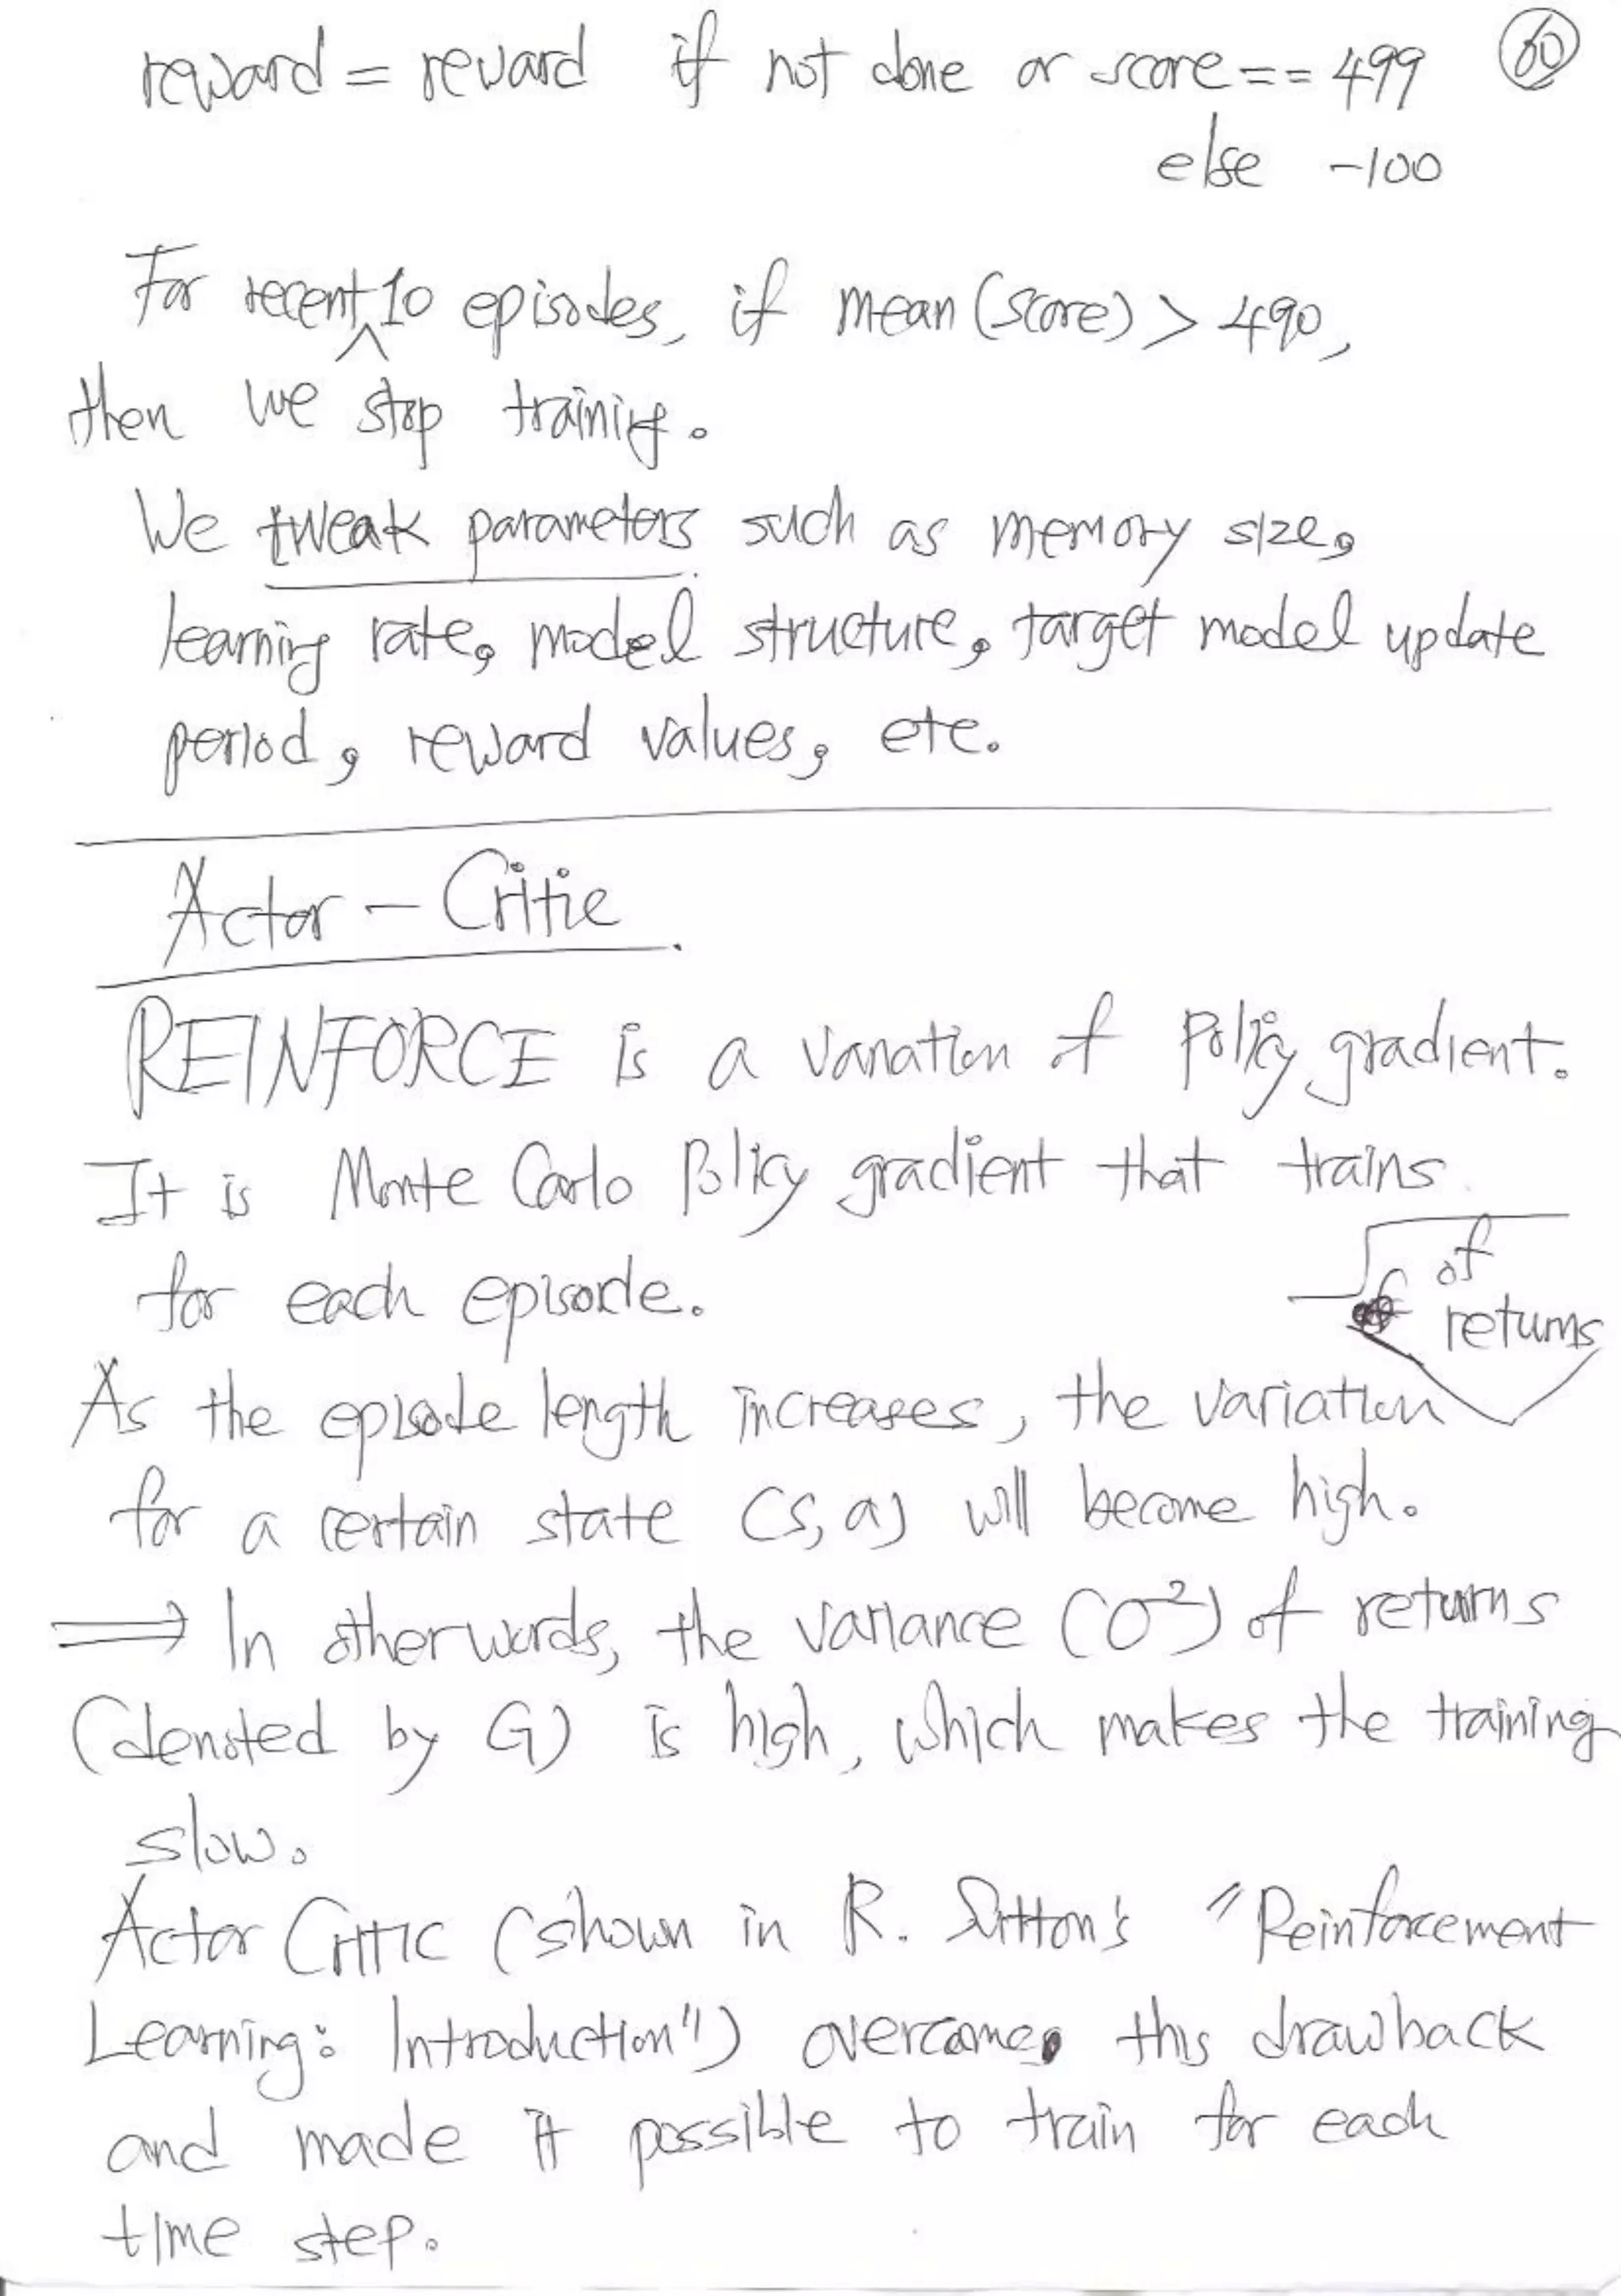 reward = reward if not done or score == 499 60
else -100
For recent 10 episodes, if mean (score) > 490,
then we stop training.
We tweak parameters such as memory size,
learning rate, model structure, target model update
period, reward values, etc.
Actor - Critic
REINFORCE is a variation of Policy gradient.
It is Monte Carlo Policy gradient that trains
for each episode.
of
returns
As the episode length increases, the variation
for a certain state (s, a) will become high.
⇒ In other words, the variance (σ²) of returns
(denoted by G) is high, which makes the training
slow.
Actor Critic (shown in R. Sutton's "Reinforcement
Learning: Introduction") overcame this drawback
and made it possible to train for each
time step.